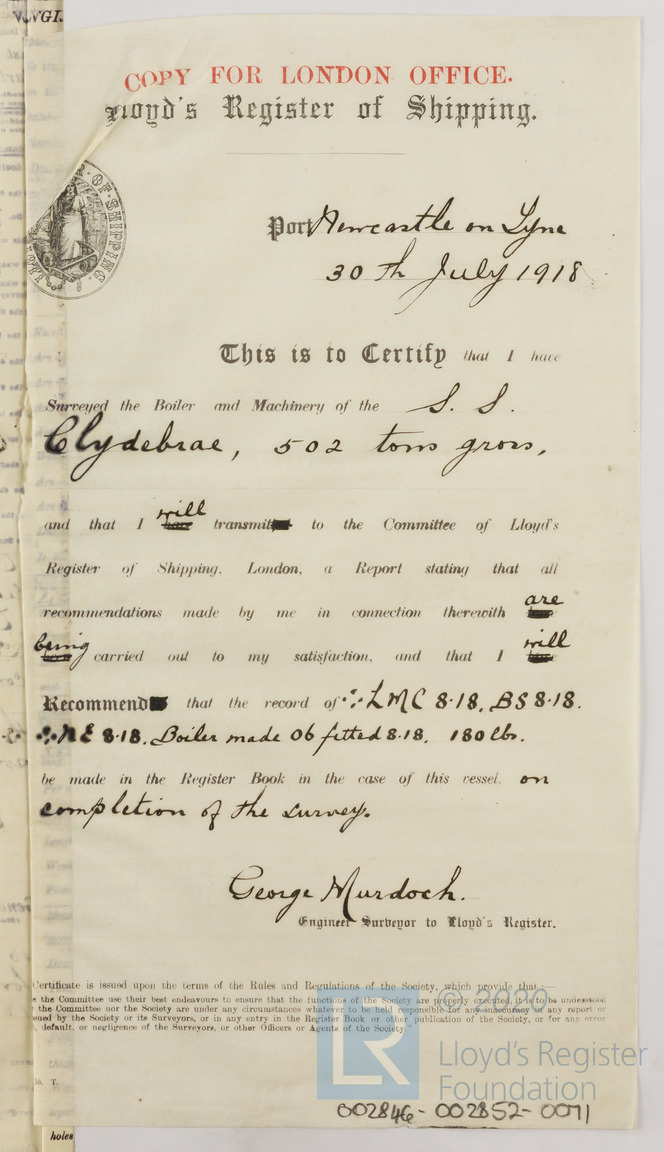 COPY FOR LONDON OFFICE.
Lloyd's Register of Shipping.
OF SHIPPING.
Port Newcastle on Tyne
30th July 1918
This is to Certify that I have
Surveyed the Boiler and Machinery of the S. S.
Clydebrae, 502 tons gross,
and that I will transmit to the Committee of Lloyd's
Register of Shipping, London, a Report stating that all
recommendations made by me in connection therewith are
being carried out to my satisfaction, and that I will
Recommend that the record of LMC 8·18, BS 8·18.
NE 8·18. Boiler made 06 fitted 8·18. 180 lbs.
be made in the Register Book in the case of this vessel. on
completion of the survey.
George Murdoch.
Engineer Surveyor to Lloyd's Register.
Certificate is issued upon the terms of the Rules and Regulations of the Society, which provide that:—
the Committee use their best endeavours to ensure that the functions of the Society are properly executed, it is to be understood
the Committee nor the Society are under any circumstances whatever to be held responsible for any inaccuracy in any report or
issued by the Society or its Surveyors, or in any entry in the Register Book or other publication of the Society, or for any error
default, or negligence of the Surveyors, or other Officers or Agents of the Society."
T.
© 2020
LR
Lloyd's Register
Foundation
002846-002852-0071
holes